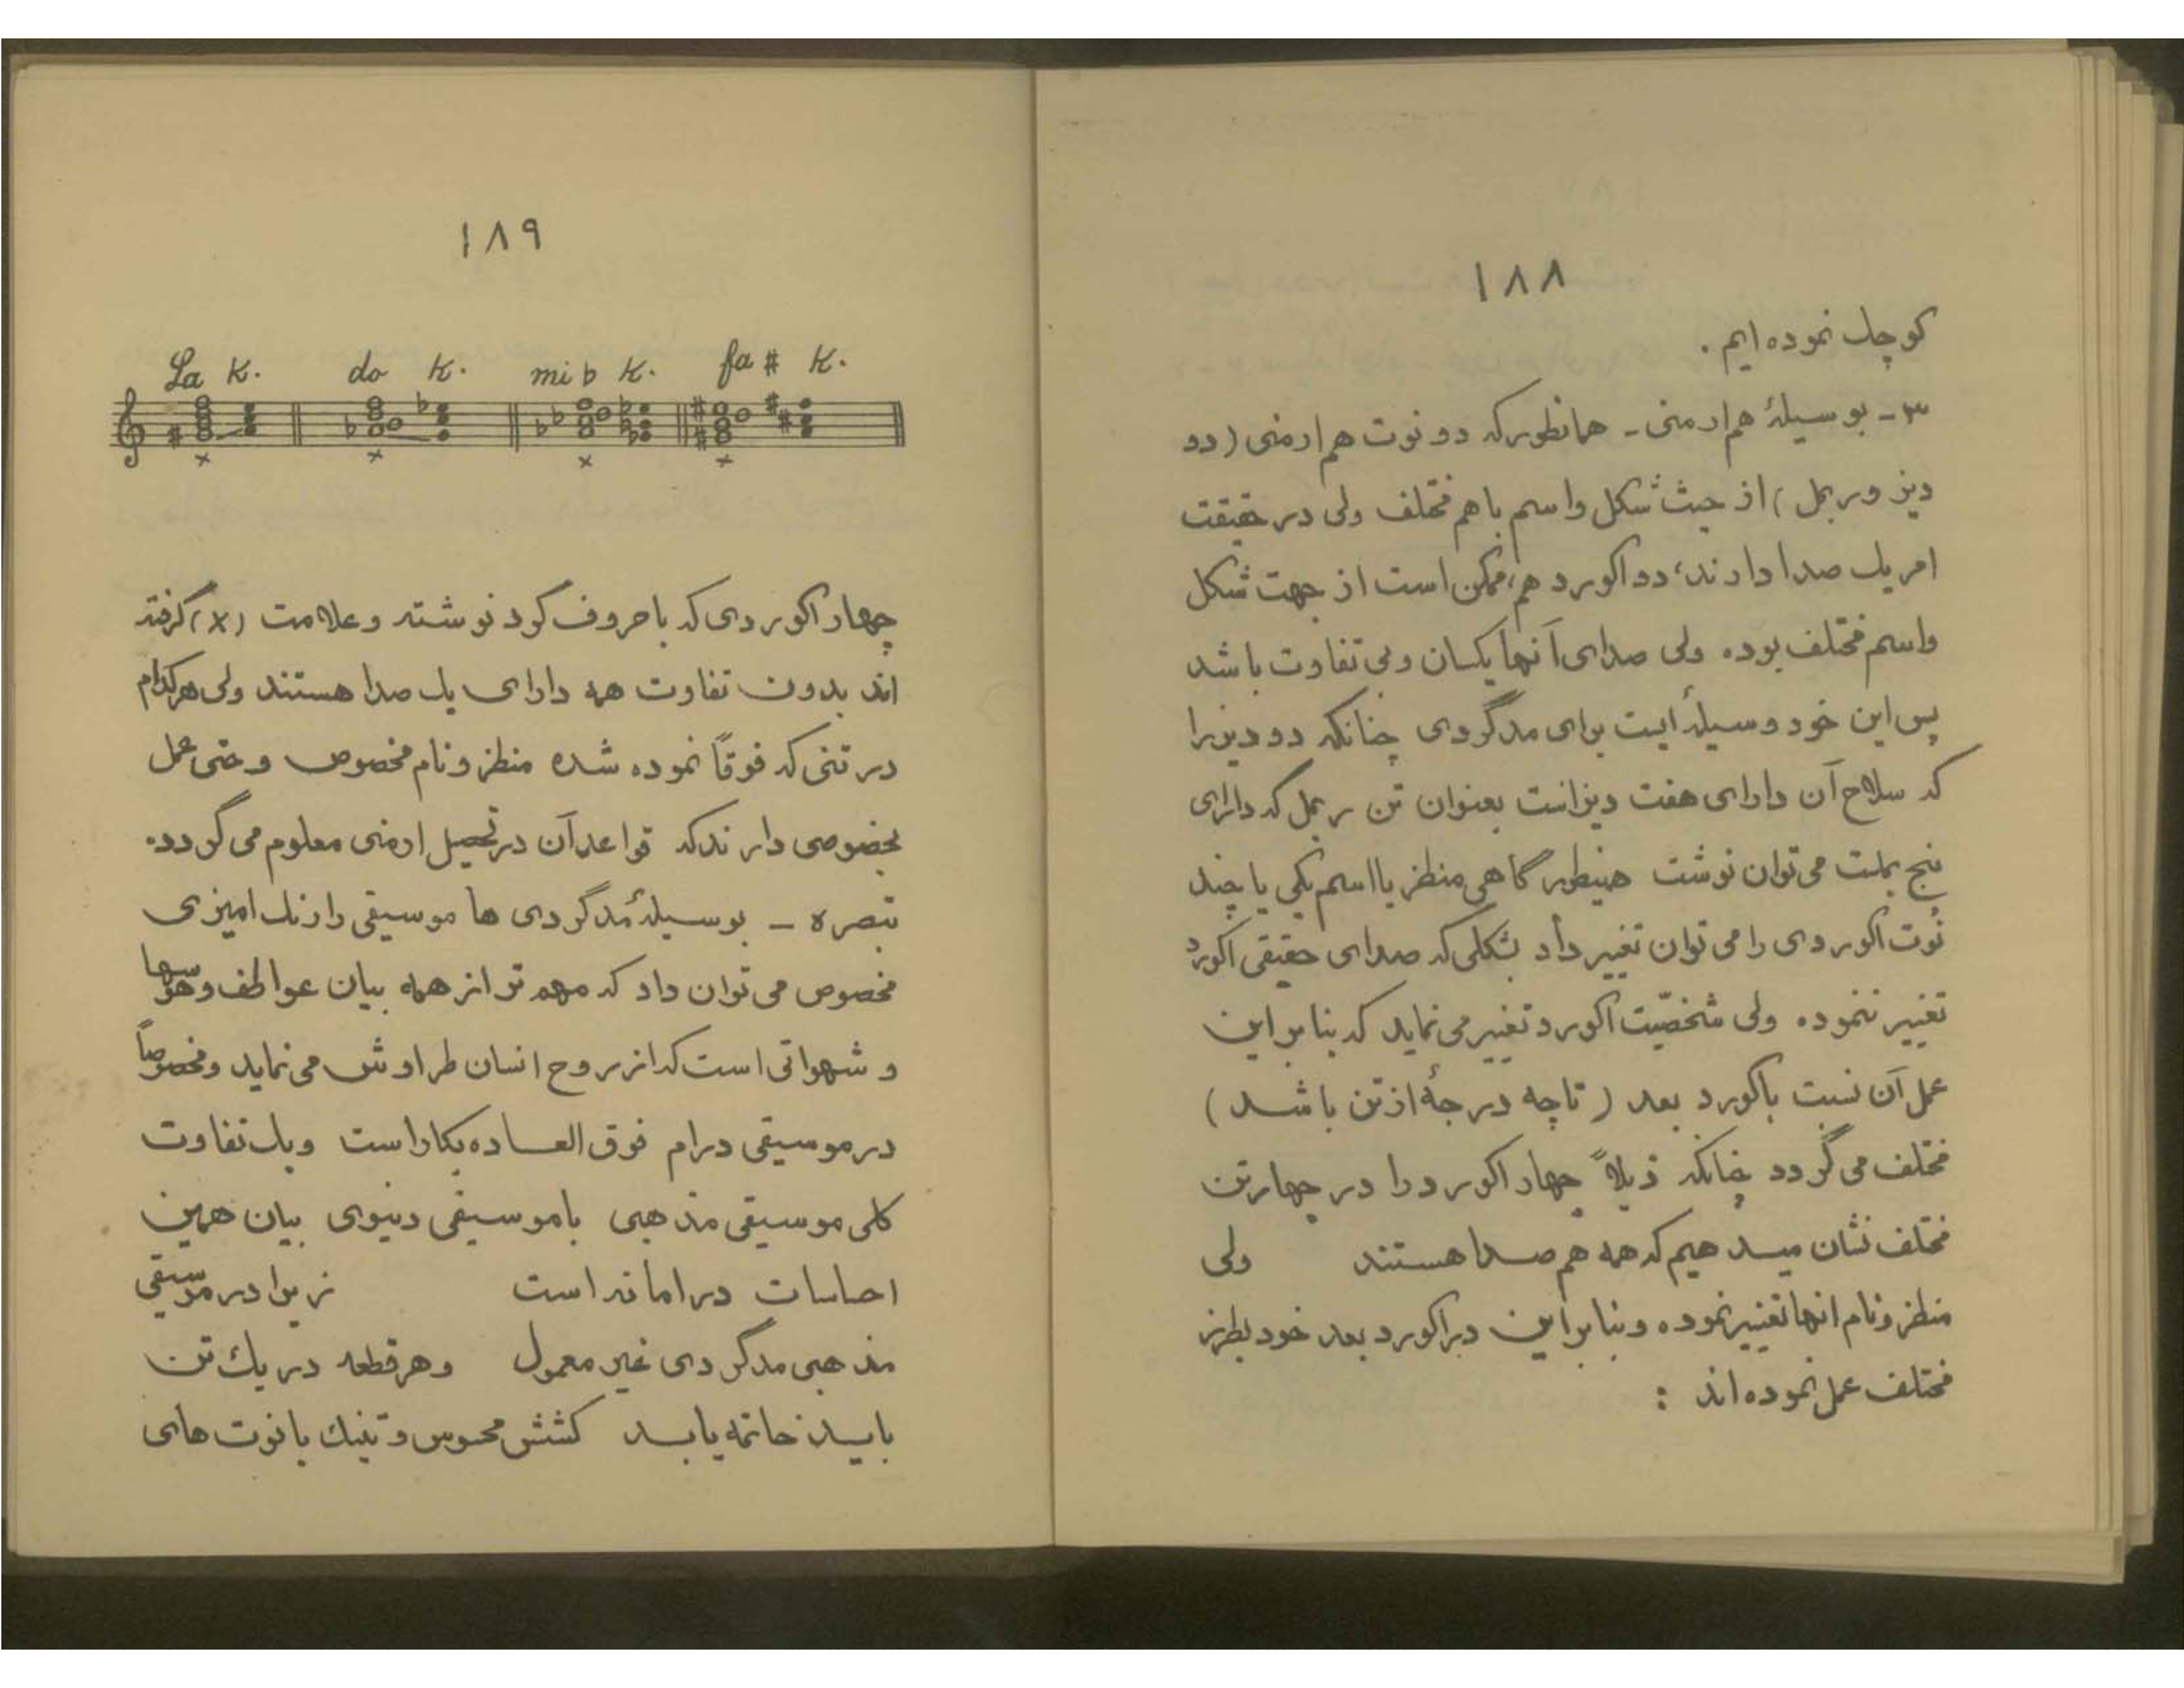 ۱۸۸
کوچک نموده ایم .
۳ - بوسیلهٔ هم ارمنی - همانطور که دو نوت هم ارمنی (دو
دیز و ر بمل) از حیث شکل و اسم با هم مختلف ولی در حقیقت
امر یک صدا دارند، دو اکورد هم، ممکن است از جهت شکل
و اسم مختلف بوده ولی صدای آنها یکسان و بی تفاوت باشد
پس این خود وسیلهٔ ایست برای مدگردی چنانکه دو دیز را
که سلاح آن دارای هفت دیز است بعنوان تن ر بمل که دارای
پنج بملست می توان نوشت همینطور گاهی منظر یا اسم یکی یا چند
نوت اکوردی را می توان تغییر داد بشکلی که صدای حقیقی اکورد
تغییر ننموده ولی شخصیّت اکورد تغییر می نماید که بنا بر این
عمل آن نسبت باکورد بعد (تا چه درجهٔ از تن باشد)
مختلف می گردد چنانکه ذیلاً چهار اکورد را در چهار تن
مختلف نشان میدهیم که همه هم صدا هستند ولی
منظر و نام انها تغییر نموده و بنا بر این در اکورد بعد خود بطرز
مختلف عمل نموده اند :
۱۸۹
La K. do K. mi b K. fa # K.
x x x x
چهار اکوردی که با حروف کود نوشته و علامت (x) گرفته
اند بدون تفاوت همه دارای یک صدا هستند ولی هر کدام
در تنی که فوقاً نموده شده منظر و نام مخصوص و حتی عمل
بخصوصی دارند که قواعد آن در تحصیل ارمنی معلوم می گردد.
تبصره - بوسیلهٔ مدگردی ها موسیقی را رنک امیزی
مخصوص می توان داد که مهم تر از همه بیان عواطف و هوسها
و شهواتی است که از روح انسان طراوش می نماید و مخصوصاً
در موسیقی درام فوق العاده بکار است و یک تفاوت
کلی موسیقی مذهبی با موسیقی دنیوی بیان همین
احساسات درامانه است زیرا در موسیقی
مذهبی مدگردی غیر معمول و هر قطعه در یک تن
باید خاتمه یابد کشش محسوس و تنیک با نوت های